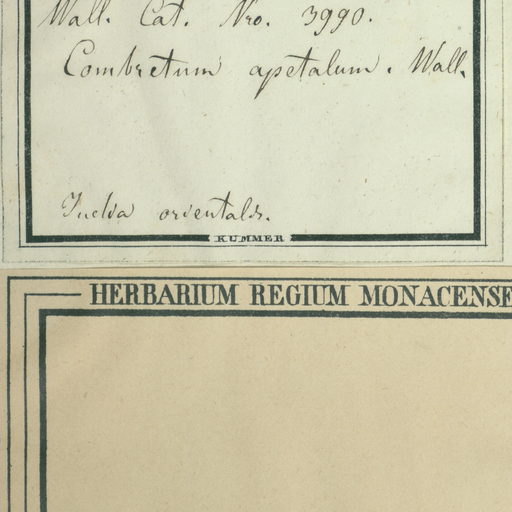 Wall. Cat. Nro. 3990.
Combretum apetalum. Wall.
India orientalis.
KUMMER
HERBARIUM REGIUM MONACENSE